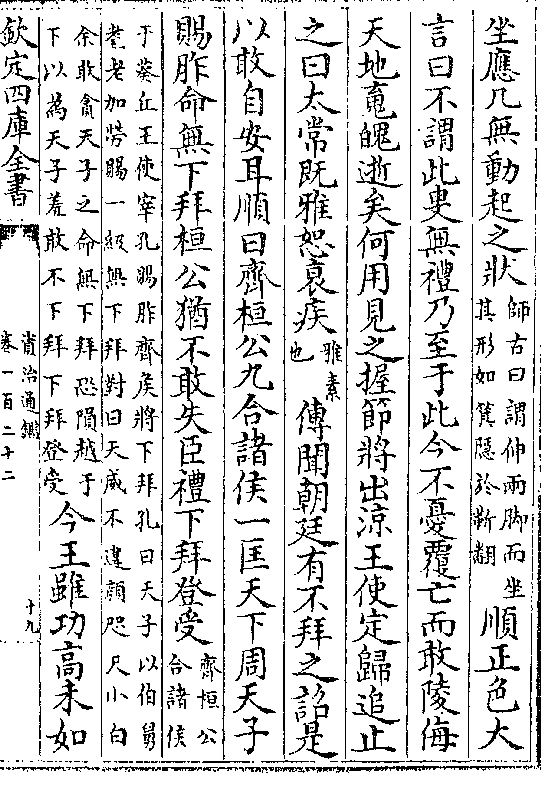 坐應几無動起之狀師古曰謂伸兩脚而坐其形如箕隱於靳翻順正色大
言曰不謂此叟無禮乃至于此今不憂覆亡而敢陵侮
天地䰟魄逝矣何用見之握節將出涼王使定歸追止
之曰太常既雅恕衰疾雅素也傳聞朝廷有不拜之詔是
以敢自安耳順曰齊桓公九合諸侯一匡天下周天子
賜胙命無下拜桓公猶不敢失臣禮下拜登受齊桓公合諸侯
于葵丘王使宰孔賜胙齊侯將下拜孔曰天子以伯舅
耋老加勞賜一級無下拜對曰天威不違顔咫尺小白
余敢貪天子之命無下拜恐隕越于下以為天子羞敢不下拜下拜登受今王雖功高未如
欽定四庫全書
資治通鑑
卷一百二十二
十九